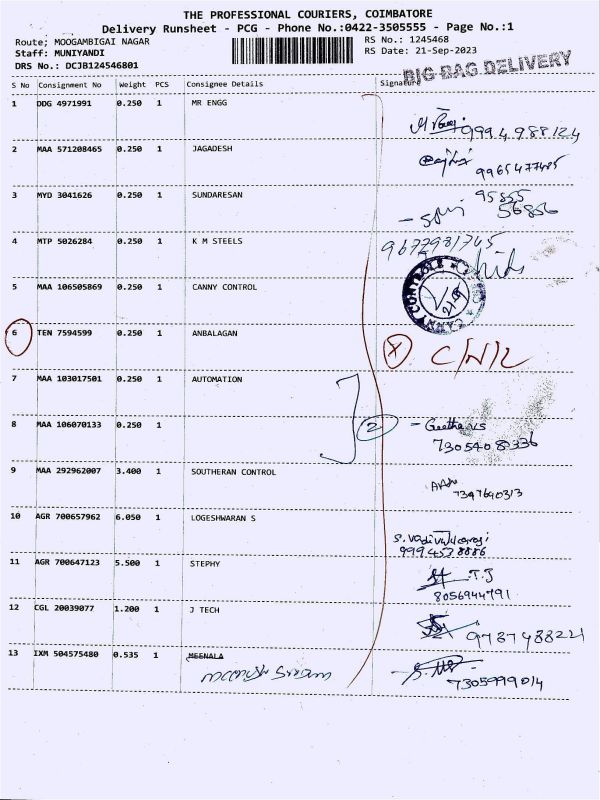 THE PROFESSIONAL COURIERS, COIMBATORE
Delivery Runsheet - PCG - Phone No.:0422-3505555 - Page No.:1
Route; MOOGAMBIGAI NAGAR
RS No.: 1245468
Staff: MUNIYANDI
RS Date: 21-Sep-2023
DRS No.: DCJB124546801
BIG BAG DELIVERY
S No Consignment No Weight PCS Consignee Details Signature
1 DDG 4971991 0.250 1 MR ENGG
9994988124
2 MAA 571208465 0.250 1 JAGADESH
9965477485
3 MYD 3041626 0.250 1 SUNDARESAN
95855
56856
4 MTP 5026284 0.250 1 K M STEELS
9677981745
5 MAA 106505869 0.250 1 CANNY CONTROL
CANNY CONTROLS
6 TEN 7594599 0.250 1 ANBALAGAN
X C/N/L
7 MAA 103017501 0.250 1 AUTOMATION
8 MAA 106070133 0.250 1
2 - Geetha
7305408336
9 MAA 292962007 3.400 1 SOUTHERAN CONTROL
7397640313
10 AGR 700657962 6.050 1 LOGESHWARAN S
9994578886
11 AGR 700647123 5.500 1 STEPHY
T.J
8056944791
12 CGL 20039077 1.200 1 J TECH
9787488221
13 IXM 504575480 0.535 1 MEENALA
7305999014